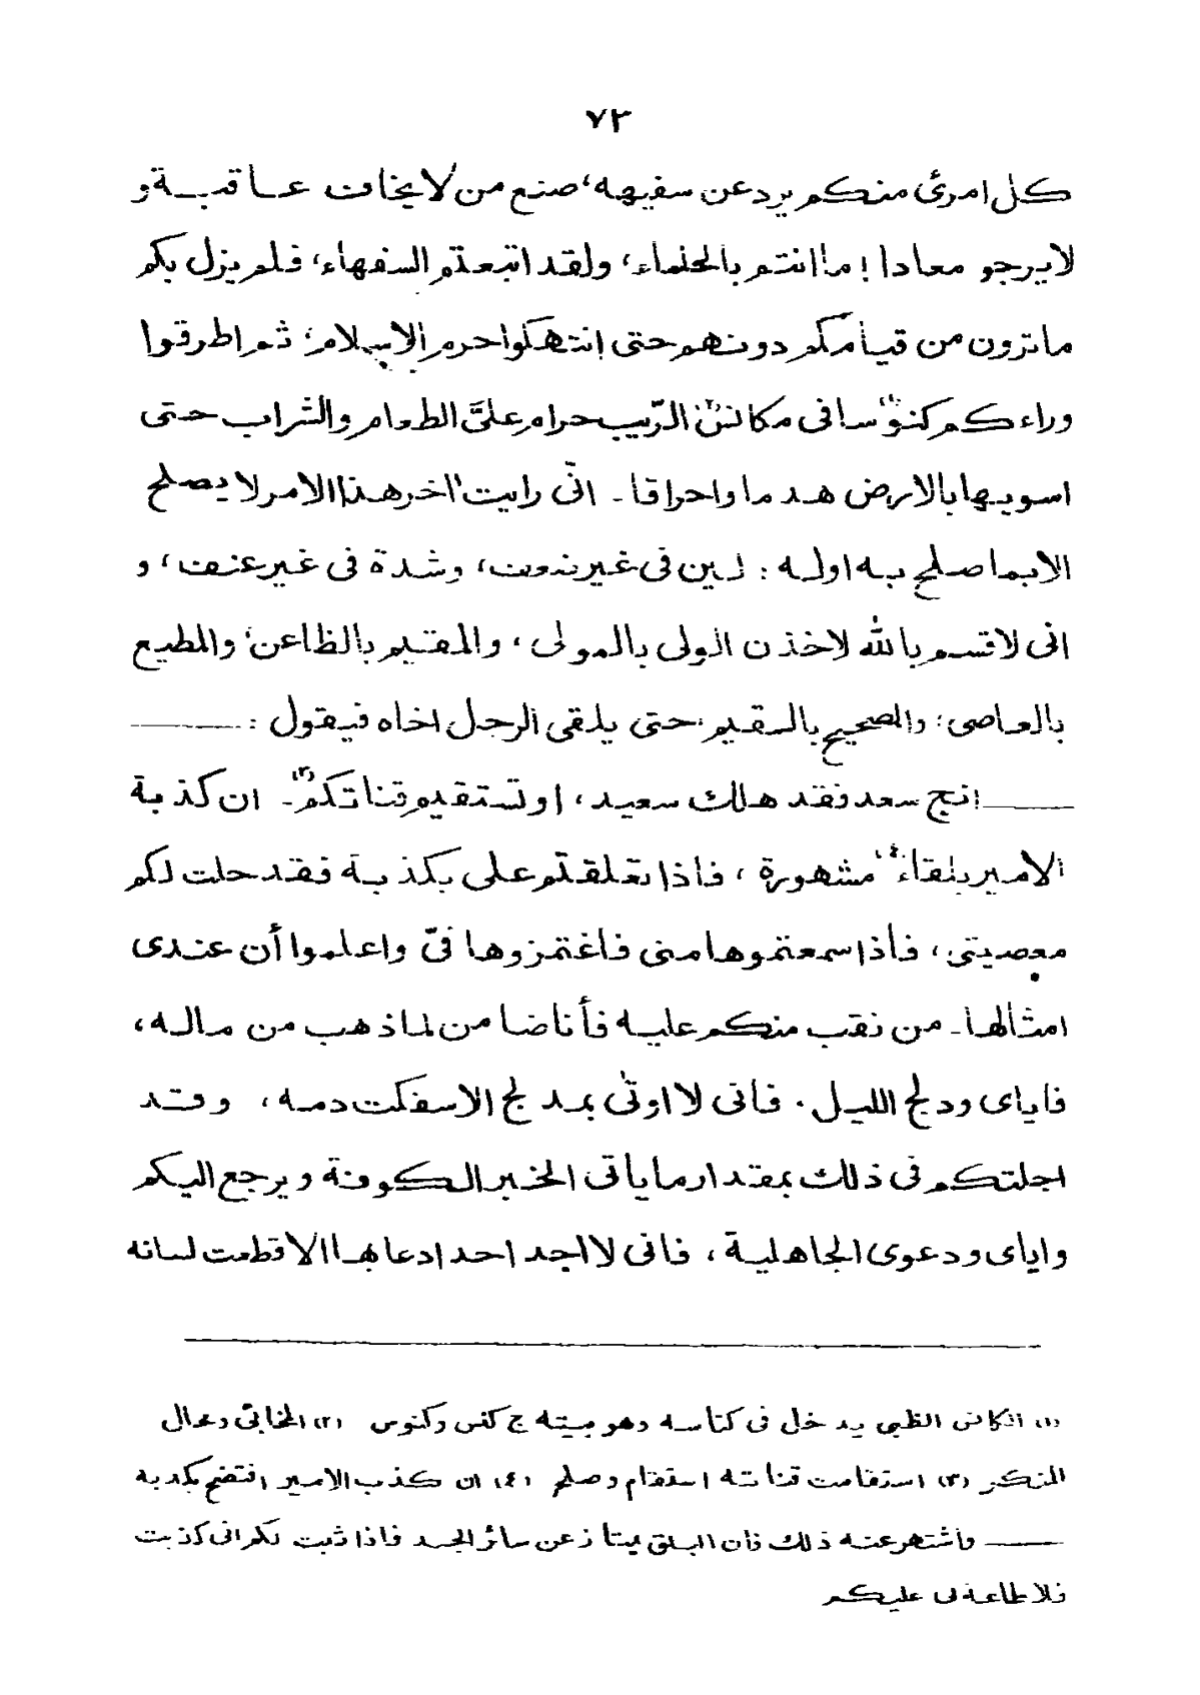 ٧٣
كل امرئ منكم يرد عن سفيهه، صنع من لا يخاف عاقبة و
لا يرجو معادا! ما انتم بالحلماء، ولقد اتبعتم السفهاء، فلم يزل بكم
ما ترون من قيامكم دونهم حتى انتهكوا حرم الاسلام؛ ثم اطرقوا
وراءكم كنو(١)سا فى مكانس(٢) الرّيب حرام علىَّ الطعام والشراب حتى
اسويها بالارض هدما واحراقا۔ انّى رايت اخر هذا الامر لا يصلح
الا بما صلح به اوله: لين فى غير ضعف، وشدة فى غير عنف، و
انى لاقسم بالله لاخذن الولى بالمولى، والمقيم بالظاعن، والمطيع
بالعاصى؛ والصحيح بالسقيم، حتى يلقى الرجل اخاه فيقول:
انج سعد فقد هلك سعيد، او تستقيم قناتكم(٣)۔ ان كذبة
الامير بلقاء(٤) مشهورة، فاذا تعلقتم على بكذبة فقد حلت لكم
معصيتى، فأذا سمعتموها منى فاغتمزوها فىّ واعلموا أن عندى
امثالها۔ من نقب منكم عليه فأنا ضامن لما ذهب من ماله،
فاياى ودلج الليل. فانى لا اوتٰى بمدلج الا سفكت دمه، وقد
اجلتكم فى ذلك بمقدار ما ياتى الخبر الكوفة ويرجع اليكم
واياى ودعوى الجاهلية، فانى لا اجد احد ادعا بها الا قطعت لسانه
(١) الكانس الظبى يدخل فى كناسه وهو بيته ج كنس وكنوس (٢) المخابئ ومحال
المنكر (٣) استقامت قناته استقام وصلح (٤) ان كذب الامير افتضح بكذبه
واشتهر عنه ذلك فان البلق يمتاز عن سائر الجسد فاذا ثبت لكم انى كذبت
فلا طاعة لى عليكم